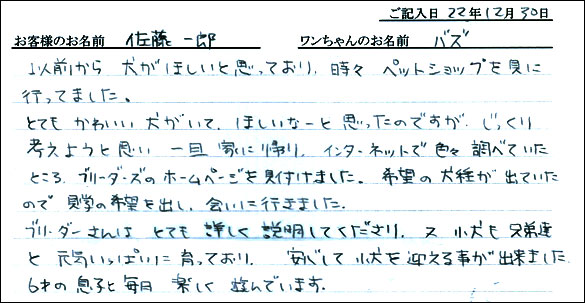 ご記入日 22年12月30日
お客様のお名前 佐藤 一郎 ワンちゃんのお名前 バズ
以前から 犬がほしいと思っており、時々 ペットショップを見に
行ってました。
とても かわいい犬がいて、ほしいなーと 思ったのですが、じっくり
考えようと思い 一旦 家に帰り、インターネットで色々調べていた
ところ、ブリーダーズのホームページを見付けました。希望の犬種が出ていた
ので 見学の希望を出し、会いに行きました。
ブリーダーさんは とても 詳しく 説明してくださり、又 小犬も 兄弟達
と 元気いっぱいに 育っており、 安心して 小犬を迎える事が出来ました
6才の息子と毎日 楽しく 遊んでいます。